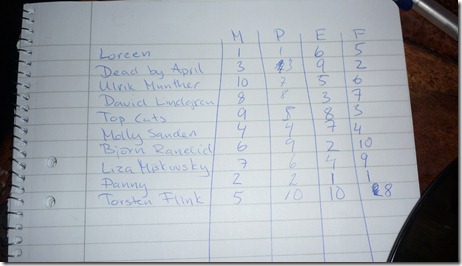 M P E F
Loreen 1 1 6 5
Dead by April 3 3 9 2
Ulrik Munther 10 7 5 6
David Lindgren 8 8 3 7
Top Cats 9 5 8 3
Molly Sanden 4 4 7 4
Björn Ranelid 6 9 2 10
Liza Miskovsky 7 6 4 9
Danny 2 2 1 1
Torsten Flink 5 10 10 8